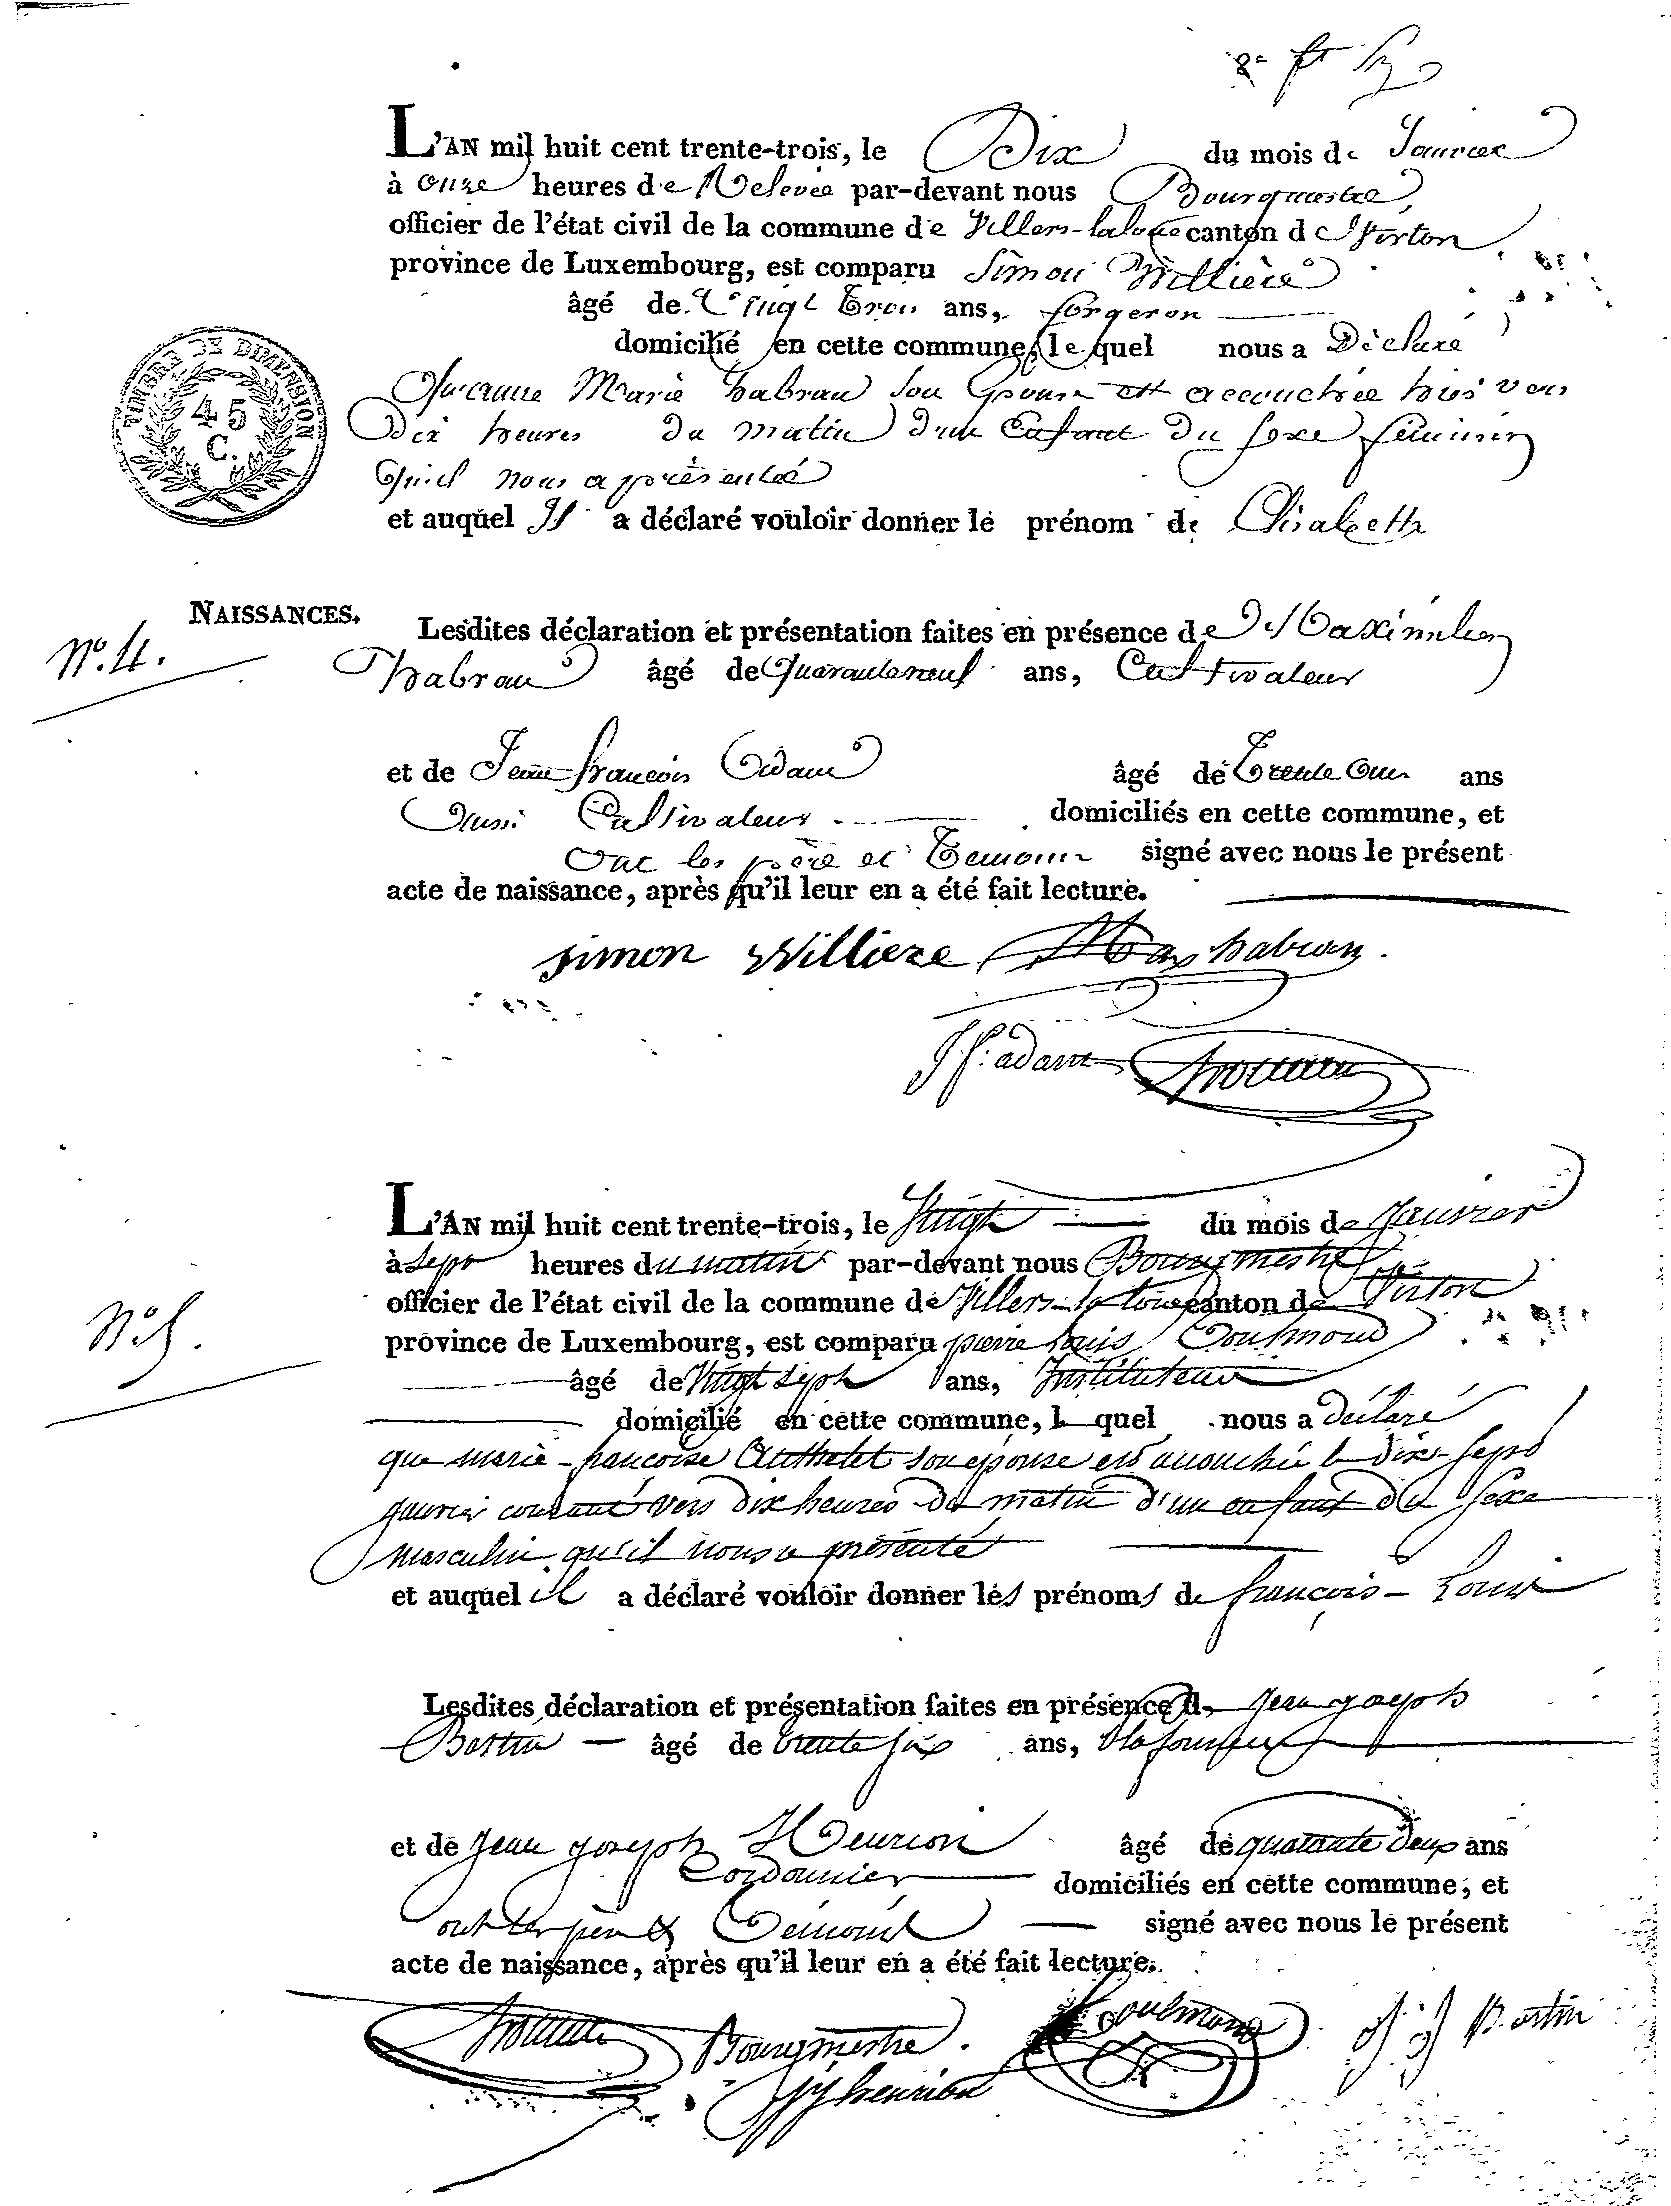 L'AN mil huit cent trente-trois, le Dix du mois de Janvier
à onze heures de Relevée par-devant nous Bourgmestre
officier de l'état civil de la commune de Villers-laloue canton de Virton
province de Luxembourg, est comparu Simon Willière
âgé de Vingt Trois ans, forgeron
domicilié en cette commune, le quel nous a Déclaré
Marie habran son Epouse est accouchée hier vers
Dix heures du matin d'un Enfant du sexe féminin
Qu'il nous a présentée
TIMBRE DE DIMENSION
45
C.
et auquel Il a déclaré vouloir donner le prénom de Elisabeth
NAISSANCES.
N.o 4.
Lesdites déclaration et présentation faites en présence de Maximilien
habran âgé de Quarante neuf ans, Cultivateur
et de Jean françois Adam âgé de Trente ans
Aussi Cultivateur domiciliés en cette commune, et
Ont les père et Temoins signé avec nous le présent
acte de naissance, après qu'il leur en a été fait lecture.
simon Williere Max habran.
J f: adam
L'AN mil huit cent trente-trois, le Vingt du mois de Janvier
à sept heures du matin par-devant nous Bourgmestre
officier de l'état civil de la commune de Villers-la-loue canton de Virton
province de Luxembourg, est comparu pierre louis Goulmond
âgé de Vingt sept ans, Instituteur
domicilié en cette commune, l quel nous a déclaré
N.o 5.
que marie-francoise Authelet son épouse est accouchée le dix-sept
janvier courant vers dix heures du matin d'un enfant du sexe
masculin qu'il nous a présenté
et auquel il a déclaré vouloir donner les prénoms de françois-Louis
Lesdites déclaration et présentation faites en présence de Jean joseph
Bertin âgé de trente six ans,
et de Jean joseph Henrion âgé de quarante deux ans
Cordonnier domiciliés en cette commune, et
ont les père & Témoins signé avec nous le présent
acte de naissance, après qu'il leur en a été fait lecture.
Bourgmestre. Goulmond J J Bertin
JJ henrion